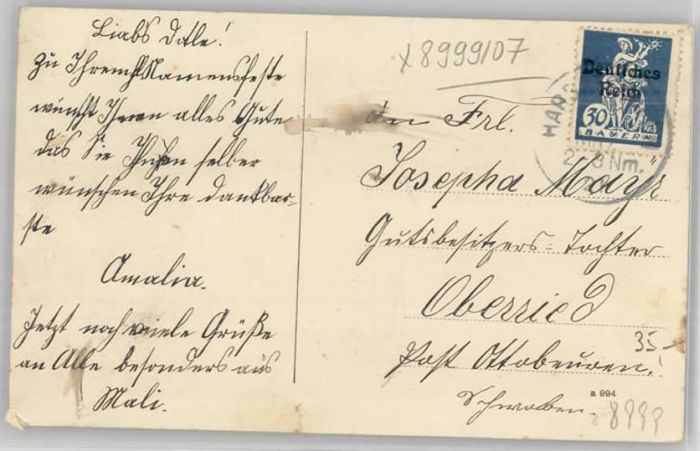 Liabs Dale!
Zu Ihrem Namensfeste
wünscht Ihnen alles Gute
das Sie Ihnen selber
wünschen Ihre dankbar-
ste
Amalia.
Jetzt noch viele Grüße
an Alle besonders aus
Mali.
x8999107
Deutsches
Reich
30
BAYERN
HA
2-3Nm.
An Frl.
Josepha Mayr
Gutsbesitzers-Tochter
Oberried
Post Ottobeuren!
Schwaben.
35-
a 994
8999